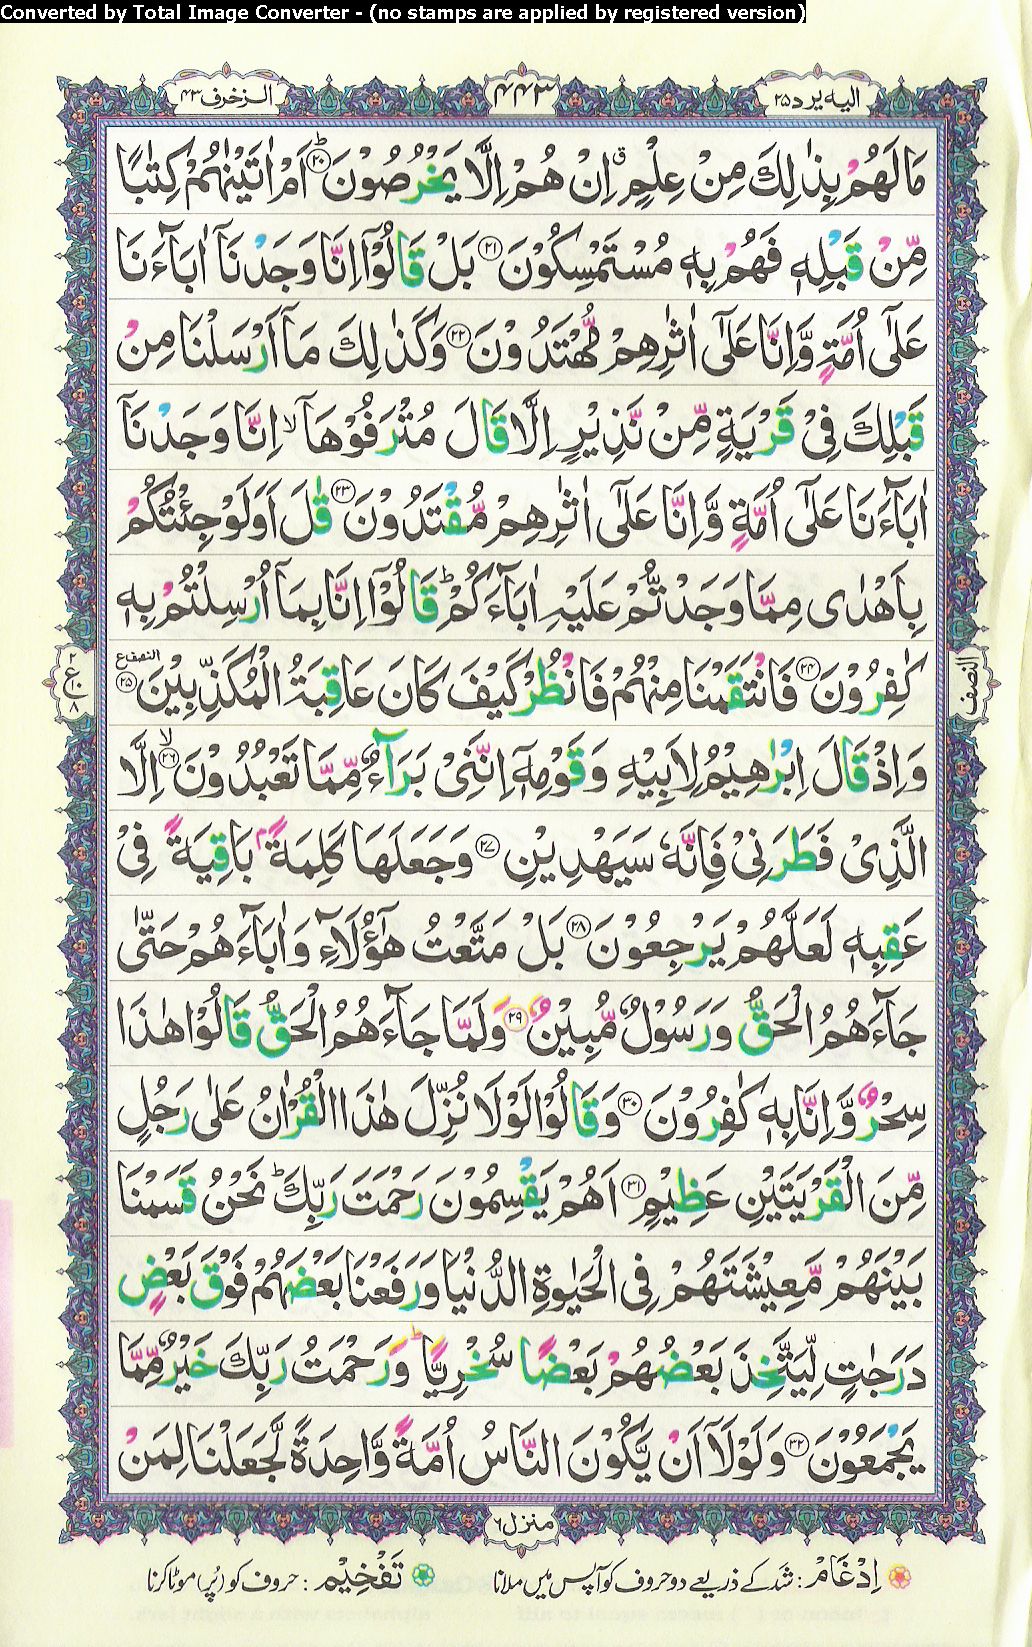 Converted by Total Image Converter - (no stamps are applied by registered version)
الیه یرد ۲۵
۴۴۳
الزخرف ۴۳
مَا لَهُمْ بِذٰلِكَ مِنْ عِلْمٍ ۗ اِنْ هُمْ اِلَّا يَخْرُصُوْنَ ؕ﴿۲۰﴾ اَمْ اٰتَيْنٰهُمْ كِتٰبًا
مِّنْ قَبْلِهٖ فَهُمْ بِهٖ مُسْتَمْسِكُوْنَ ﴿۲۱﴾ بَلْ قَالُوْۤا اِنَّا وَجَدْنَاۤ اٰبَآءَنَا
عَلٰۤى اُمَّةٍ وَّاِنَّا عَلٰۤى اٰثٰرِهِمْ مُّهْتَدُوْنَ ﴿۲۲﴾ وَكَذٰلِكَ مَاۤ اَرْسَلْنَا مِنْ
قَبْلِكَ فِيْ قَرْيَةٍ مِّنْ نَّذِيْرٍ اِلَّا قَالَ مُتْرَفُوْهَاۤ ۙ اِنَّا وَجَدْنَاۤ
اٰبَآءَنَا عَلٰۤى اُمَّةٍ وَّاِنَّا عَلٰۤى اٰثٰرِهِمْ مُّقْتَدُوْنَ ﴿۲۳﴾ قٰلَ اَوَلَوْ جِئْتُكُمْ
بِاَهْدٰى مِمَّا وَجَدْتُّمْ عَلَيْهِ اٰبَآءَكُمْ ؕ قَالُوْۤا اِنَّا بِمَاۤ اُرْسِلْتُمْ بِهٖ
النصف ع
كٰفِرُوْنَ ﴿۲۴﴾ فَانْتَقَمْنَا مِنْهُمْ فَانْظُرْ كَيْفَ كَانَ عَاقِبَةُ الْمُكَذِّبِيْنَ ﴿۲۵﴾
النصف
۲
ع ۱۰
۸
وَاِذْ قَالَ اِبْرٰهِيْمُ لِاَبِيْهِ وَقَوْمِهٖۤ اِنَّنِيْ بَرَآءٌ مِّمَّا تَعْبُدُوْنَ ۙ﴿۲۶﴾ اِلَّا
الَّذِيْ فَطَرَنِيْ فَاِنَّهٗ سَيَهْدِيْنِ ﴿۲۷﴾ وَجَعَلَهَا كَلِمَةًۢ بَاقِيَةً فِيْ
عَقِبِهٖ لَعَلَّهُمْ يَرْجِعُوْنَ ﴿۲۸﴾ بَلْ مَتَّعْتُ هٰۤؤُلَآءِ وَاٰبَآءَهُمْ حَتّٰى
جَآءَهُمُ الْحَقُّ وَرَسُوْلٌ مُّبِيْنٌ ﴿۲۹﴾ وَلَمَّا جَآءَهُمُ الْحَقُّ قَالُوْا هٰذَا
سِحْرٌ وَّاِنَّا بِهٖ كٰفِرُوْنَ ﴿۳۰﴾ وَقَالُوْا لَوْلَا نُزِّلَ هٰذَا الْقُرْاٰنُ عَلٰى رَجُلٍ
مِّنَ الْقَرْيَتَيْنِ عَظِيْمٍ ﴿۳۱﴾ اَهُمْ يَقْسِمُوْنَ رَحْمَتَ رَبِّكَ ؕ نَحْنُ قَسَمْنَا
بَيْنَهُمْ مَّعِيْشَتَهُمْ فِي الْحَيٰوةِ الدُّنْيَا وَرَفَعْنَا بَعْضَهُمْ فَوْقَ بَعْضٍ
دَرَجٰتٍ لِّيَتَّخِذَ بَعْضُهُمْ بَعْضًا سُخْرِيًّا ؕ وَرَحْمَتُ رَبِّكَ خَيْرٌ مِّمَّا
يَجْمَعُوْنَ ﴿۳۲﴾ وَلَوْلَاۤ اَنْ يَّكُوْنَ النَّاسُ اُمَّةً وَّاحِدَةً لَّجَعَلْنَا لِمَنْ
منزل ۶
اِدْغَام : شد کے ذریعے دو حروف کو آپس میں ملانا تَفْخِیْم : حروف کو (پُر) موٹا کرنا